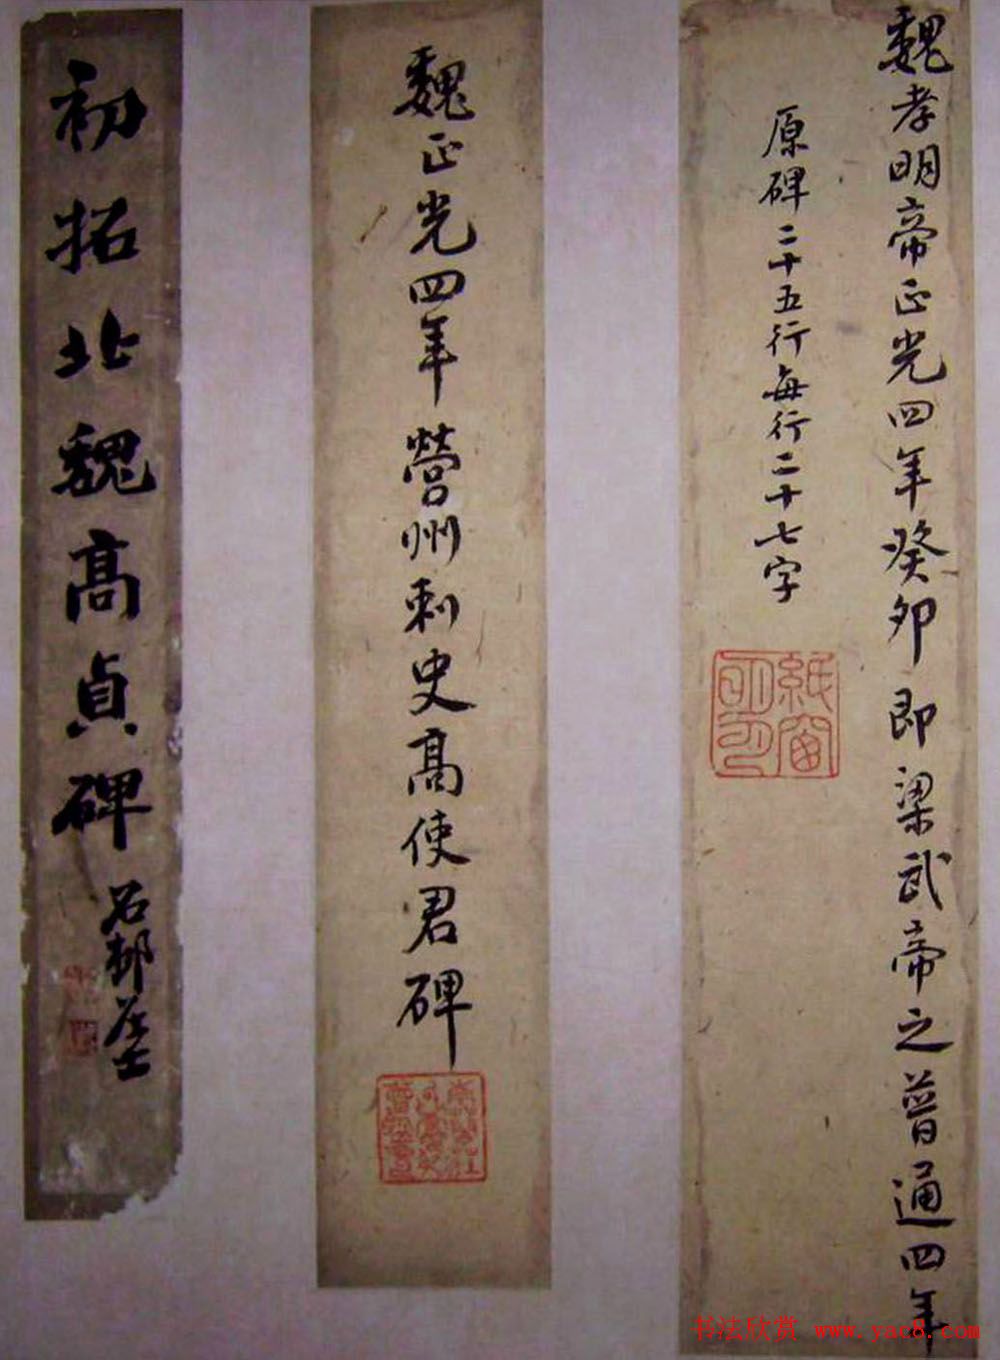 魏孝明帝正光四年癸卯即梁武帝之普通四年
原碑二十五行每行二十七字
紙窗
魏正光四年營州刺史高使君碑
初拓北魏高貞碑
書法欣赏 www.yac8.com